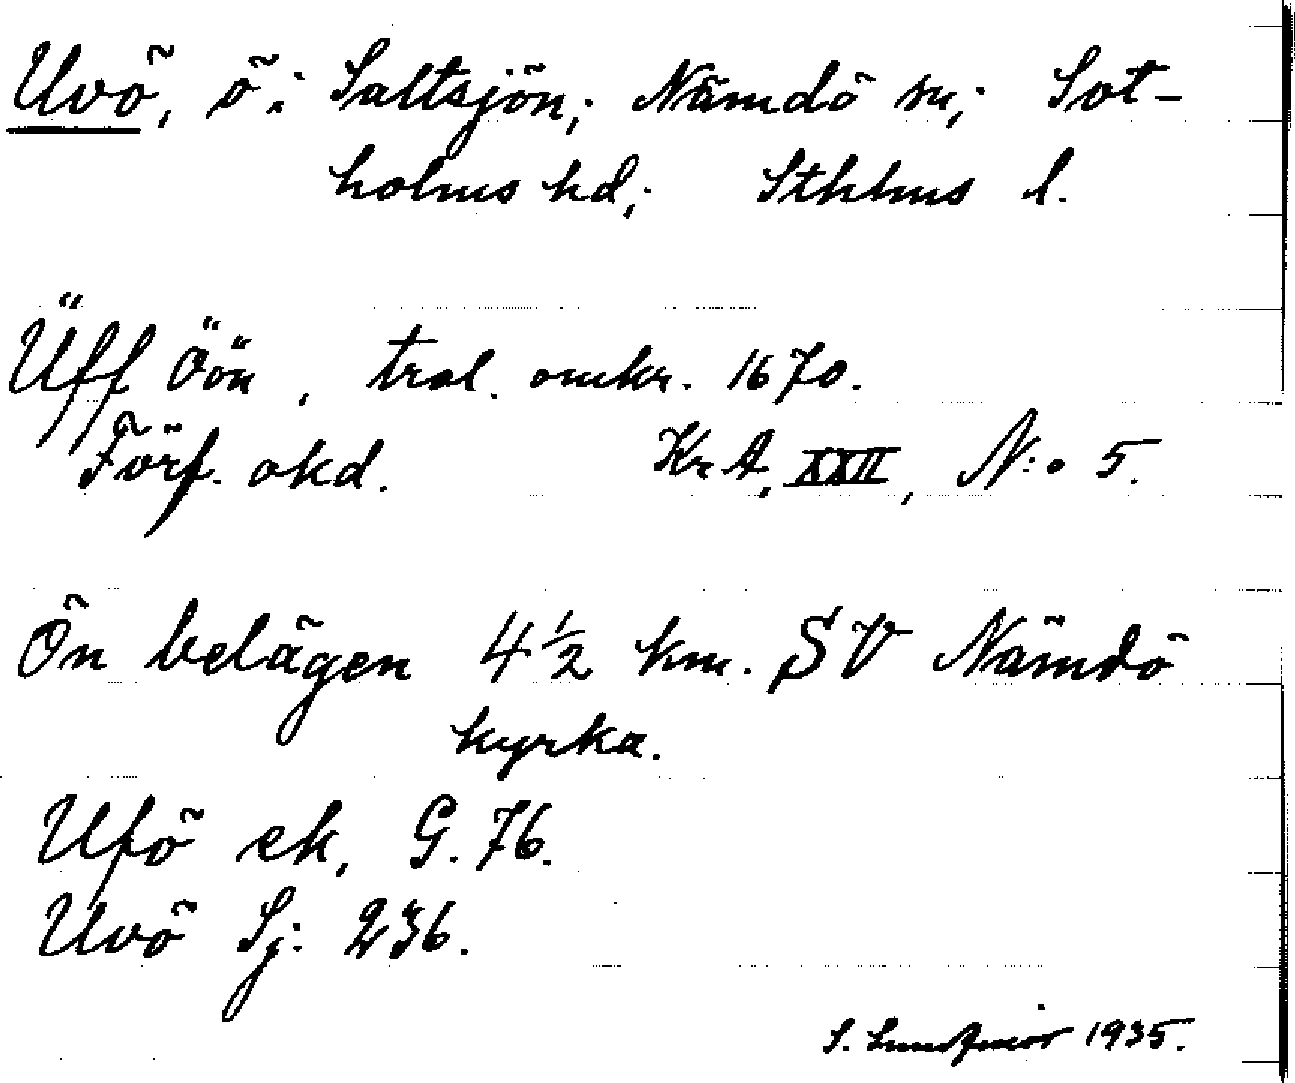 Uvö, ö i Saltsjön; Nämdö sn; Sot-
holms hd; Sthlms l.
Üff Öön, trol. omkr. 1670.
Förf. okd. Kr A, XXII, N:o 5.
Ön belägen 4 1/2 km. SV Nämdö
kyrka.
Ufö ek, G. 76.
Uvö Sj: 236.
S. 1935.